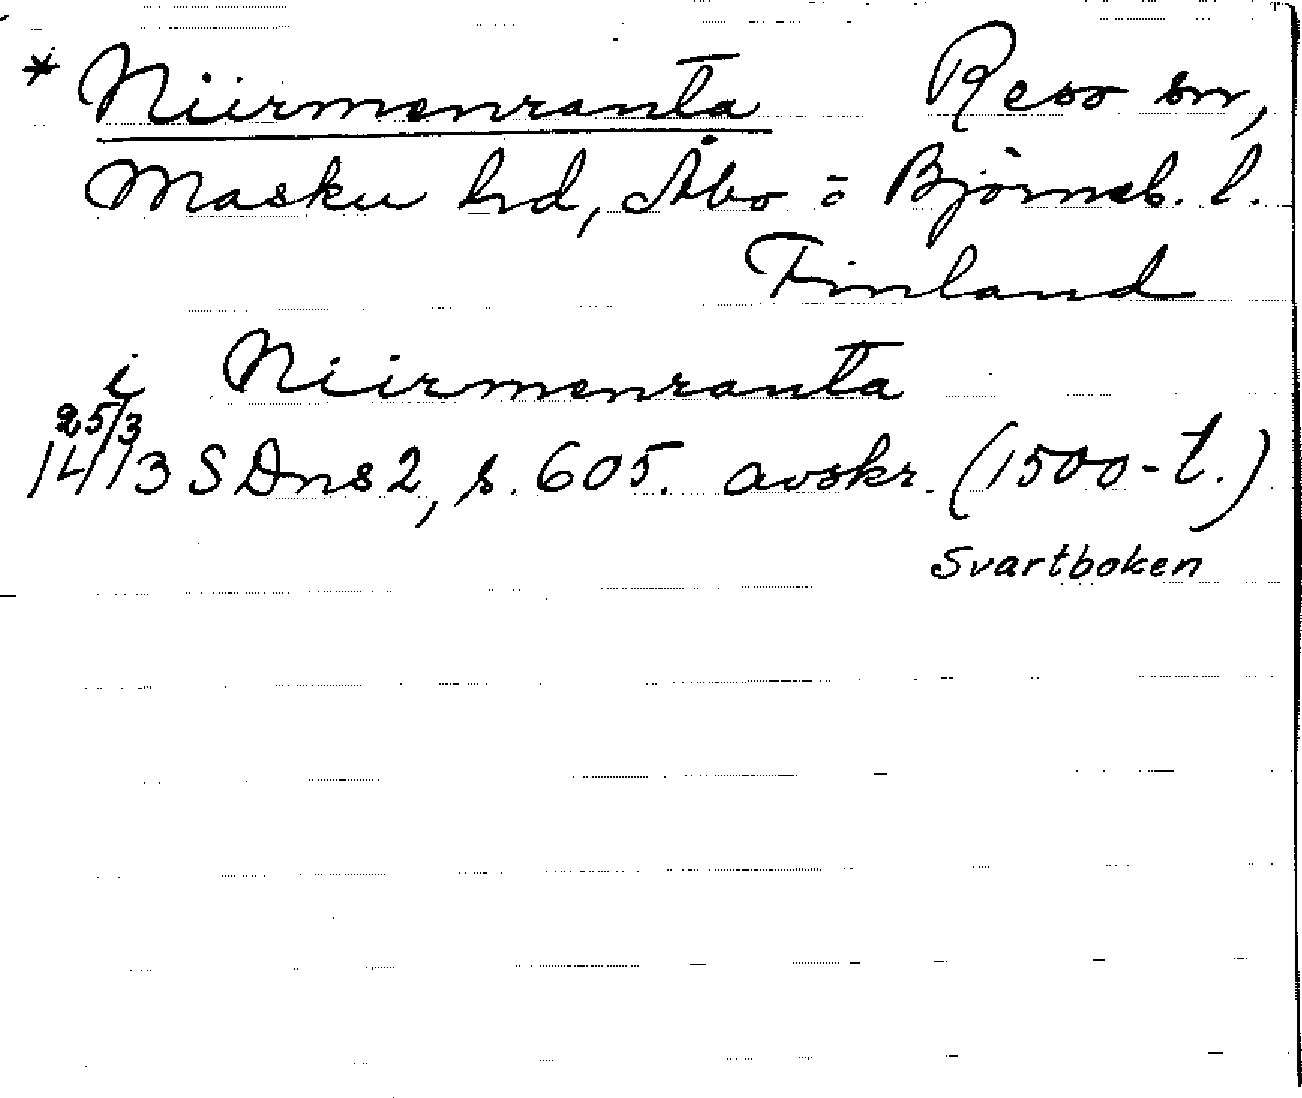 * Niirmenranta Reso sn,
Masku hd, Åbo = Björneb. l.
Finland
i Niirmenranta
25/3
1413 SDns2, s. 605. avskr. (1500-t.)
Svartboken